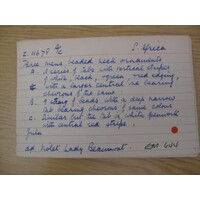 2.11678 S. Africa
Three mens beaded neck ornaments
a. A series of tabs with vertical stripes
of white, dark, green, red edging,
with a larger central one bearing
chevrons of the same
b. A string of beads with a deep narrow
tab bearing chevrons of same colour
c. Similar but the tab is white openwork
with central red stripe.
Zulu
dd Violet Lady Beaumont. EM 444